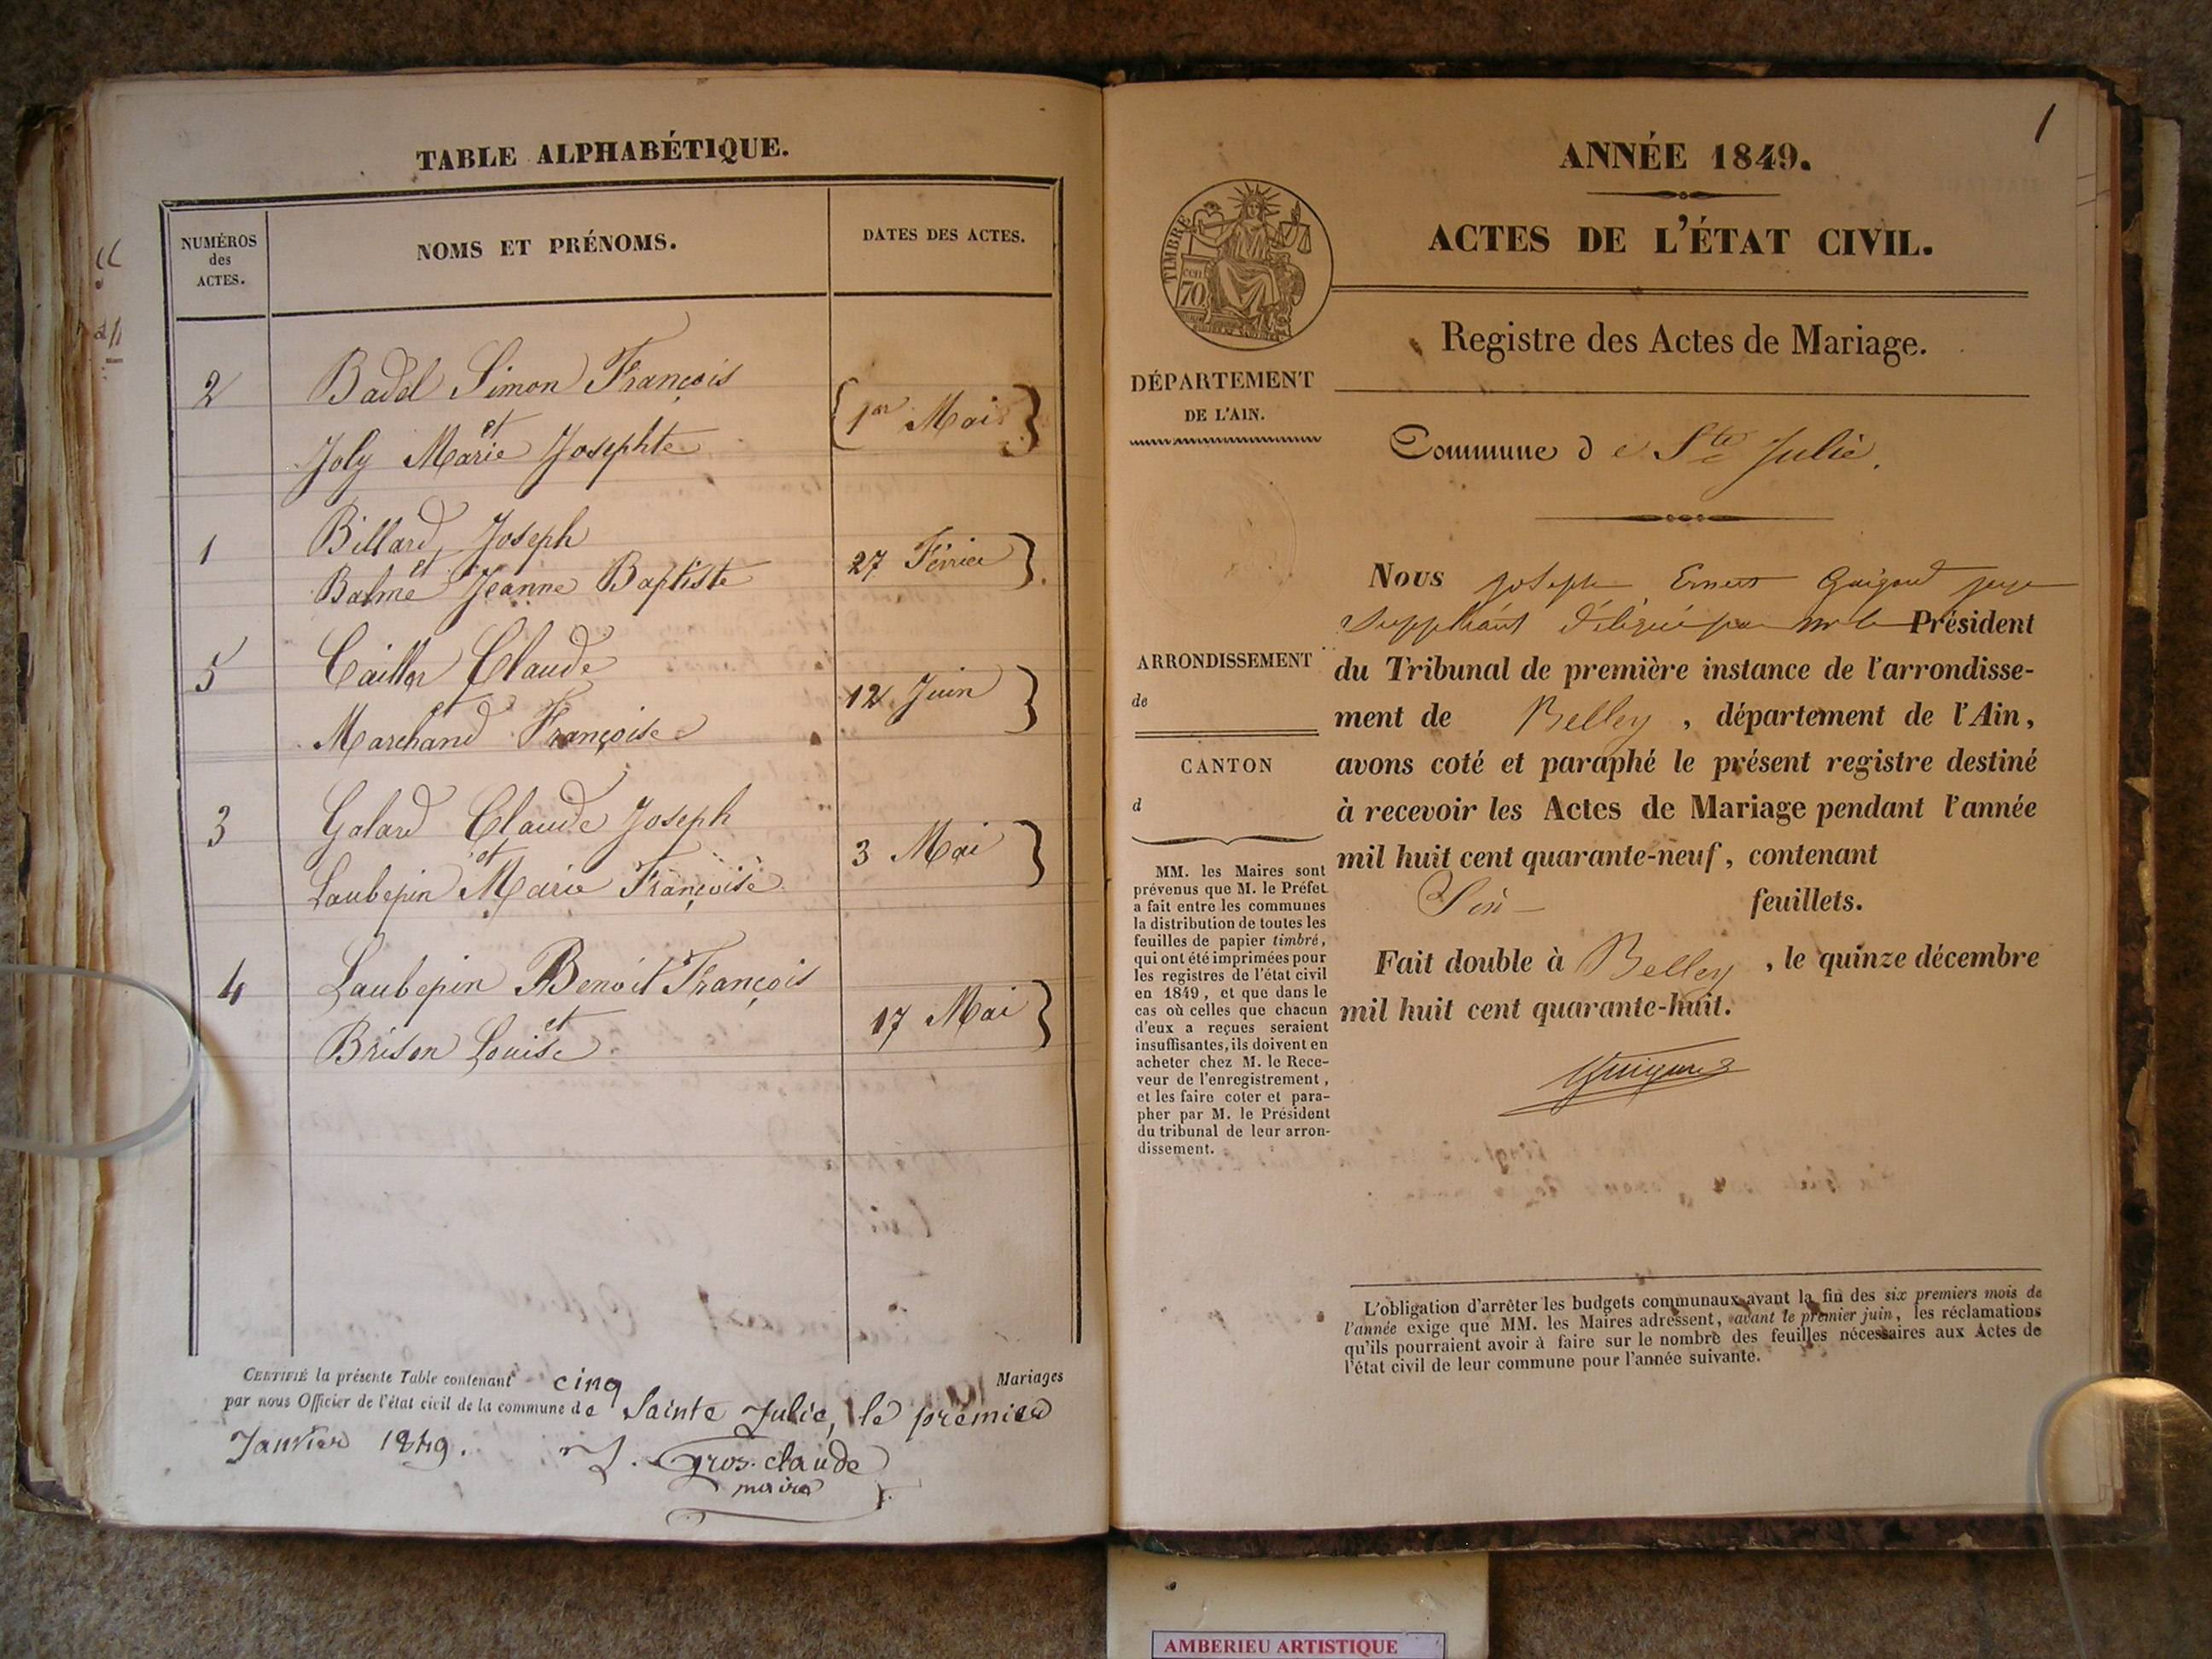 TABLE ALPHABÉTIQUE.
NUMÉROS
des
ACTES.
NOMS ET PRÉNOMS.
DATES DES ACTES.
2
Badel Simon François
et
Joly Marie Josephte
1er Mai
1
Billard Joseph
et
Balme Jeanne Baptiste
27 Février
5
Cailler Claude
et
Marchand Françoise
12 Juin
3
Golard Claude Joseph
et
Laubepin Marie Françoise
3 Mai
4
Laubepin Benoit François
et
Brison Louise
17 Mai
CERTIFIÉ la présente Table contenant cinq Mariages
par nous Officier de l'état civil de la commune de Sainte Julie, le premier
Janvier 1849.
Gros-claude
maire
1
ANNÉE 1849.
ACTES DE L'ÉTAT CIVIL.
Registre des Actes de Mariage.
TIMBRE
70
DÉPARTEMENT
DE L'AIN.
ARRONDISSEMENT
de
CANTON
d
MM. les Maires sont
prévenus que M. le Préfet
a fait entre les communes
la distribution de toutes les
feuilles de papier timbré,
qui ont été imprimées pour
les registres de l'état civil
en 1849, et que dans le
cas où celles que chacun
d'eux a reçues seraient
insuffisantes, ils doivent en
acheter chez M. le Rece-
veur de l'enregistrement,
et les faire coter et para-
pher par M. le Président
du tribunal de leur arron-
dissement.
Commune de Ste Julie.
Nous Joseph Ernest Guigard juge
suppléant délégué par mr le Président
du Tribunal de première instance de l'arrondisse-
ment de Belley, département de l'Ain,
avons coté et paraphé le présent registre destiné
à recevoir les Actes de Mariage pendant l'année
mil huit cent quarante-neuf, contenant
feuillets.
Fait double à Belley, le quinze décembre
mil huit cent quarante-huit.
L'obligation d'arrêter les budgets communaux avant la fin des six premiers mois de
l'année exige que MM. les Maires adressent, avant le premier juin, les réclamations
qu'ils pourraient avoir à faire sur le nombre des feuilles nécessaires aux Actes de
l'état civil de leur commune pour l'année suivante.
AMBERIEU ARTISTIQUE